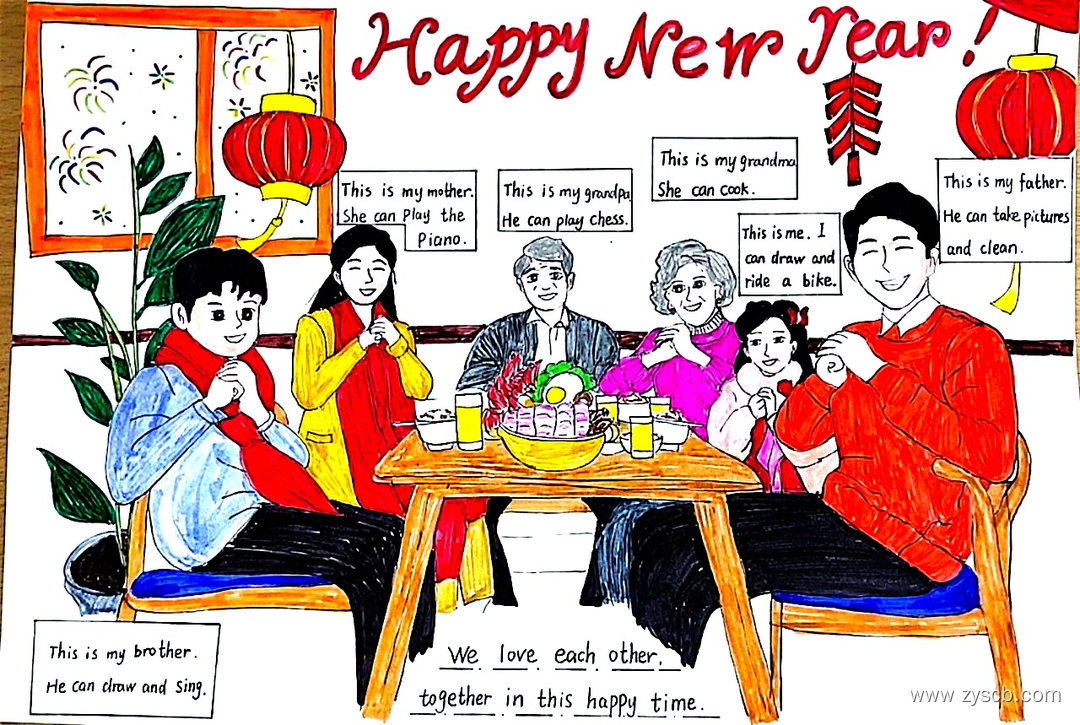 Happy New Year!
This is my mother.
She can Play the
Piano.
This is my grandpa
He can play chess.
This is my grandma
She can cook.
This is me. I
can draw and
ride a bike.
This is my father.
He can take pictures
and clean.
This is my brother.
He can draw and Sing.
We love each other.
together in this happy time.
www.zyscb.com